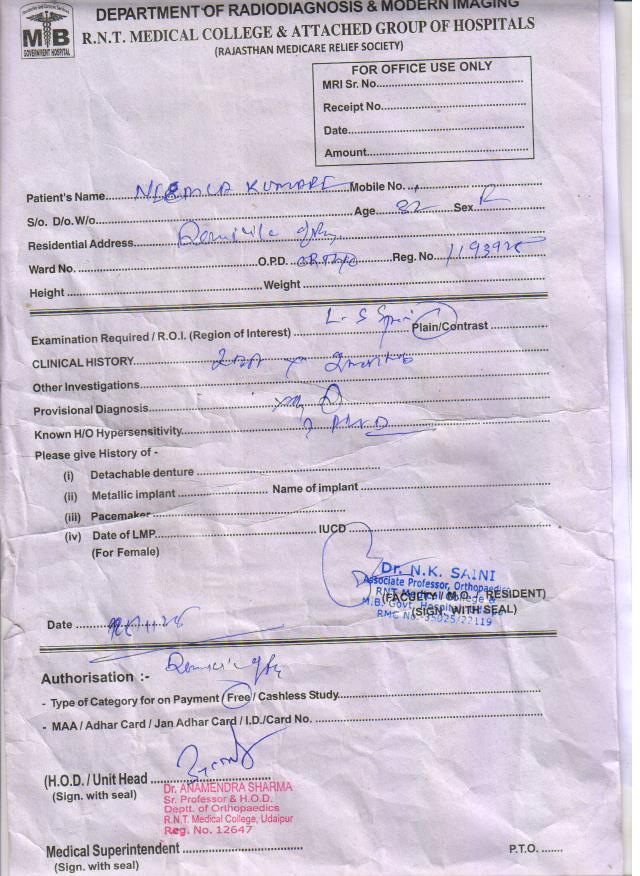 DEPARTMENT OF RADIODIAGNOSIS & MODERN IMAGING
R.N.T. MEDICAL COLLEGE & ATTACHED GROUP OF HOSPITALS
(RAJASTHAN MEDICARE RELIEF SOCIETY)
MB
GOVERNMENT HOSPITAL
FOR OFFICE USE ONLY
MRI Sr. No.
Receipt No.
Date
Amount
Patient's Name NIRMLA KUMARI Mobile No.
S/o. D/o. W/o Age Sex
Residential Address
Ward No. O.P.D. Reg. No
Height Weight
Examination Required / R.O.I. (Region of Interest) L-S Spine Plain/Contrast
CLINICAL HISTORY
Other Investigations
Provisional Diagnosis
Known H/O Hypersensitivity ? PIVD
Please give History of -
(i) Detachable denture
(ii) Metallic implant Name of implant
(iii) Pacemaker
(iv) Date of LMP IUCD
(For Female)
Dr. N.K. SAINI
Associate Professor, Orthopaedics
RNT Medical College &
(FACULTY / M.O. / RESIDENT)
M.B. Govt. Hospital
(SIGN. WITH SEAL)
RMC No.-35025/22119
Date
Authorisation :-
- Type of Category for on Payment / Free / Cashless Study
- MAA / Adhar Card / Jan Adhar Card / I.D./Card No.
(H.O.D. / Unit Head
(Sign. with seal)
Dr. ANAMENDRA SHARMA
Sr. Professor & H.O.D.
Deptt. of Orthopaedics
R.N.T. Medical College, Udaipur
Reg. No. 12647
Medical Superintendent
(Sign. with seal)
P.T.O.